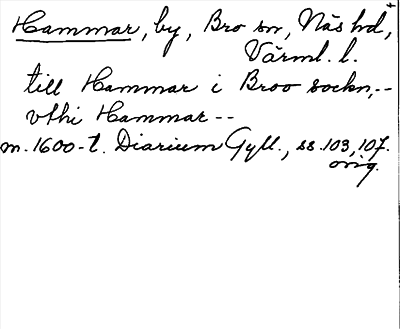 Hammar, by, Bro sn, Näs hd,
Värml. l.
till Hammar i Broo sockn,--
vthi Hammar --
m. 1600-t. Diarium Gyll., ss. 103, 107.
orig.